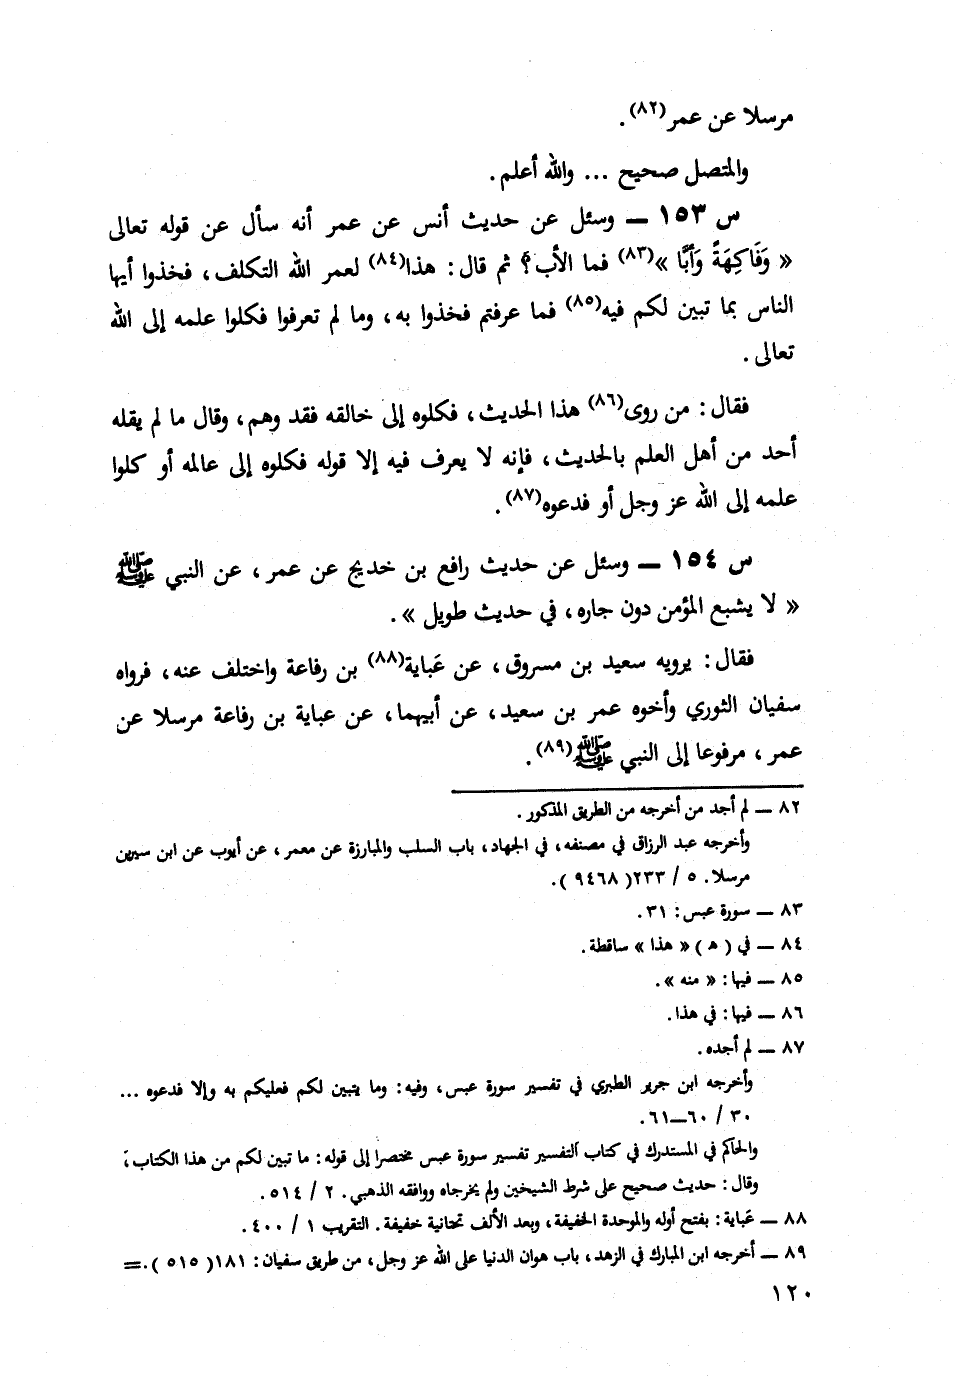 مرسلا عن عمر(٨٢).
والمتصل صحيح ... والله أعلم.
س ١٥٣ — وسئل عن حديث أنس عن عمر أنه سأل عن قوله تعالى
« وَفَاكِهَةً وَأَبًّا »(٨٣) فما الأب؟ ثم قال: هذا(٨٤) لعمر الله التكلف، فخذوا أيها
الناس بما تبين لكم فيه(٨٥) فما عرفتم فخذوا به، وما لم تعرفوا فكلوا علمه إلى الله
تعالى.
فقال: من روى(٨٦) هذا الحديث، فكلوه إلى خالقه فقد وهم، وقال ما لم يقله
أحد من أهل العلم بالحديث، فإنه لا يعرف فيه إلا قوله فكلوه إلى عالمه أو كلوا
علمه إلى الله عز وجل أو فدعوه(٨٧).
س ١٥٤ — وسئل عن حديث رافع بن خديج عن عمر، عن النبي ﷺ
« لا يشبع المؤمن دون جاره، في حديث طويل ».
فقال: يرويه سعيد بن مسروق، عن عَباية(٨٨) بن رفاعة واختلف عنه، فرواه
سفيان الثوري وأخوه عمر بن سعيد، عن أبيهما، عن عباية بن رفاعة مرسلا عن
عمر، مرفوعا إلى النبي ﷺ(٨٩).
٨٢ — لم أجد من أخرجه من الطريق المذكور.
وأخرجه عبد الرزاق في مصنفه، في الجهاد، باب السلب والمبارزة عن معمر، عن أيوب عن ابن سيرين
مرسلا. ٥ / ٢٣٣( ٩٤٦٨ ).
٨٣ — سورة عبس: ٣١.
٨٤ — في ( هـ ) « هذا » ساقطة.
٨٥ — فيها: « منه ».
٨٦ — فيها: في هذا.
٨٧ — لم أجده.
وأخرجه ابن جرير الطبري في تفسير سورة عبس، وفيه: وما يتبين لكم فعليكم به وإلا فدعوه ...
٣٠ / ٦٠—٦١.
والحاكم في المستدرك في كتاب التفسير تفسير سورة عبس مختصرا إلى قوله: ما تبين لكم من هذا الكتاب،
وقال: حديث صحيح على شرط الشيخين ولم يخرجاه ووافقه الذهبي. ٢ / ٥١٤.
٨٨ — عَباية: بفتح أوله والموحدة الخفيفة، وبعد الألف تحتانية خفيفة. التقريب ١ / ٤٠٠.
٨٩ — أخرجه ابن المبارك في الزهد، باب هوان الدنيا على الله عز وجل، من طريق سفيان: ١٨١( ٥١٥ ).=
١٢٠